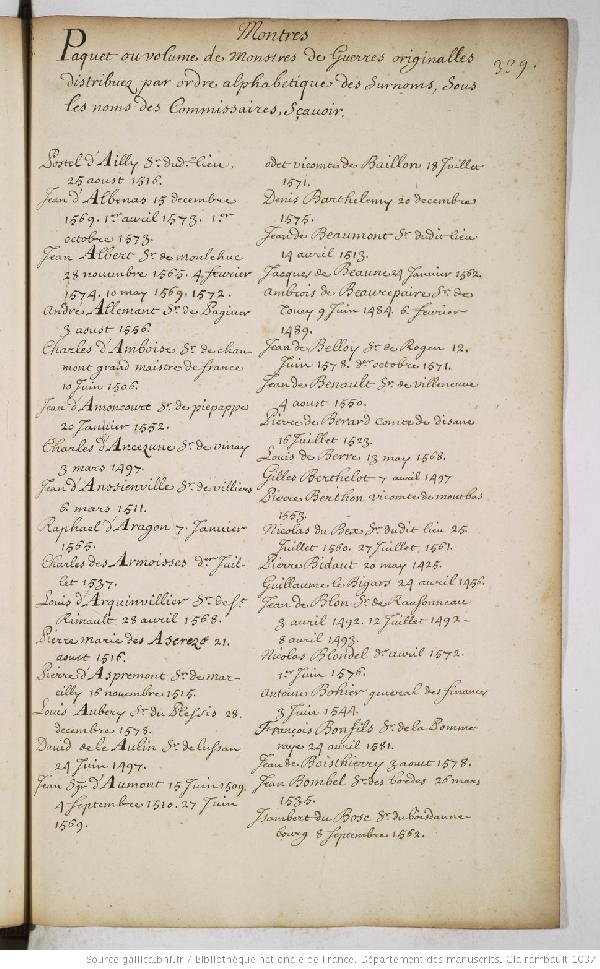 Montres
Paquet ou volume de Monstres de Guerres originalles
distribuez par ordre alphabetique des Surnoms, Sous
les noms des Commissaires, Sçavoir.
329.
Postel d'Ailly Sr. dud. lieu.
25 aoust 1516.
Jean d'Albenas 15 decembre
1569. 1er avril 1573. 1er
octobre 1573.
Jean Albert Sr. de
28 novembre 1565. 4 fevrier
1574. 10 may 1569. 1572.
André Allemant Sr. de
3 aoust 1556.
Charles d'Amboise Sr. de chau-
mont grand maistre de france
10 Juin 1506.
Jean d'Amoncourt Sr. de piepappe
20 Janvier 1552.
Charles d'Ancezune Sr. de vinay
3 mars 1497.
Jean d'Anssienville Sr. de villiers
6 mars 1511.
Raphael d'Aragon 7. Janvier
1565.
Charles des Armoisses der Juil-
let 1537.
Louis d'Arquinvillier Sr. de St.
Rimault 28 avril 1568.
Pierre marie des 21.
aoust 1516.
Pierre d'Aspremont Sr. de mar-
cilly 16 novembre 1515.
Louis Aubery Sr. du Plessis 28.
decembre 1578.
David de le Aulin Sr. de lussan
24 Juin 1497.
Jean Sgr. d'Aumont 15 Juin 1509.
4 Septembre 1510. 27 Juin
1569.
odet vicomte de Baillon 18 Juillet
1571.
Denis Barthelemy 20 decembre
1575.
Jean de Beaumont Sr. dudit lieu
14 avril 1513.
Jacques de Beaune 24 Janvier 1562.
Ambrois de Beaurepaire Sr. de
9 Juin 1484. 6 fevrier
1489.
Jean de Belloy Sr. de Rogen 12.
Juin 1578. der octobre 1571.
Jean de Benault Sr. de villeneuve
4 aoust 1550.
Pierre de Berard comte de disane
16 Juillet 1523.
Louis de Berre 13 may 1568.
Gilles Berthelot 7 avril 1497
Pierre Berthon vicomte de montbas
1553.
Nicolas du Bex Sr. dudit lieu 25.
Juillet 1560. 27 Juillet, 1561.
Pierre Bidaut 20 may 1425.
Guillaume le Bigars 24 avril 1456.
Jean de Blon Sr. de
3 avril 1492. 12 Juillet 1492-
8 avril 1493.
Nicolas Blondel der avril 1572.
1er Juin 1576.
Antoine Bohier general des finances
3 Juin 1544.
François Bonfils Sr. de la Pomme
raye 24 avril 1581.
Jean de Boisthierry 3 aout 1578.
Jean Bombel Sr. des bordes 26 mars
1535.
Isambert du Bosc Sr. du
bourg 8 Septembre 1562.
Source gallica.bnf.fr / Bibliothèque nationale de France. Département des manuscrits. Clairambault 1037